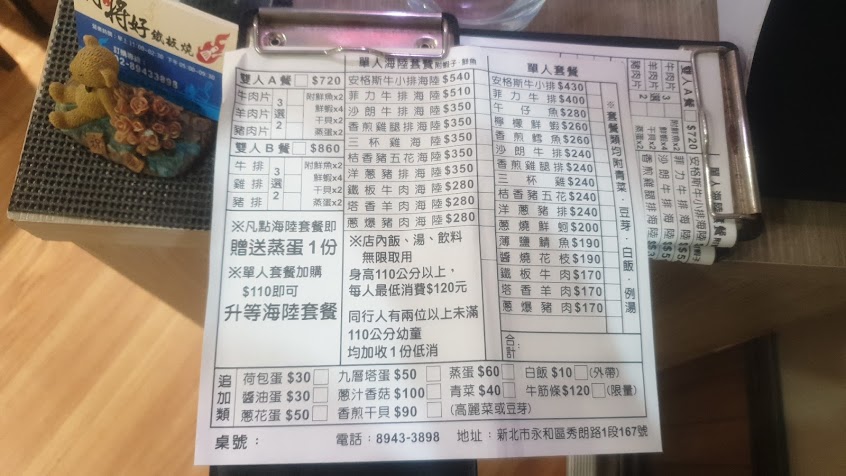 將好 鐵板燒
02-89433898
雙人A餐 □ $720
牛肉片
羊肉片
豬肉片
3選2
附鮮魚x2
鮮蝦x4
干貝x2
蒸蛋x2
雙人B餐 □ $860
牛排
雞排
豬排
3選2
附鮮魚x2
鮮蝦x4
干貝x2
蒸蛋x2
※凡點海陸套餐即
贈送蒸蛋1份
※單人套餐加購
$110即可
升等海陸套餐
單人海陸套餐 附蝦子·鮮魚
安格斯牛小排海陸 $540
菲力牛排海陸 $510
沙朗牛排海陸 $350
香煎雞腿排海陸 $350
三杯雞海陸 $350
桔香豬五花海陸 $350
洋蔥豬排海陸 $350
鐵板牛肉海陸 $280
塔香羊肉海陸 $280
蔥爆豬肉海陸 $280
※店內飯、湯、飲料
無限取用
身高110公分以上,
每人最低消費$120元
同行人有兩位以上未滿
110公分幼童
均加收1份低消
單人套餐
安格斯牛小排 $430
菲力牛排 $400
牛仔魚 $280
檸檬鮮蝦 $260
香煎鱈魚 $260
沙朗牛排 $240
香煎雞腿排 $240
三杯雞 $240
桔香豬五花 $240
洋蔥豬排 $240
蔥燒鮮蚵 $200
薄鹽鯖魚 $190
醬燒花枝 $190
鐵板牛肉 $170
塔香羊肉 $170
蔥爆豬肉 $170
合計:
※套餐類均附青菜·豆芽·白飯·例湯
追加類
荷包蛋 $30 □ 九層塔蛋 $50 □ 蒸蛋 $60 □ 白飯 $10 □ (外帶)
醬油蛋 $30 □ 蔥汁香菇 $100 □ 青菜 $40 □ 牛筋條 $120 □ (限量)
蔥花蛋 $50 □ 香煎干貝 $90 □ (高麗菜或豆芽)
桌號: 電話:8943-3898 地址:新北市永和區秀朗路1段167號
雙人A餐 □ $720
牛肉片
羊肉片
豬肉片
3選2
附鮮魚x2
鮮蝦x4
干貝x2
蒸蛋x2
安格斯牛小排海陸
菲力牛排海陸
沙朗牛排海陸
香煎雞腿排海陸